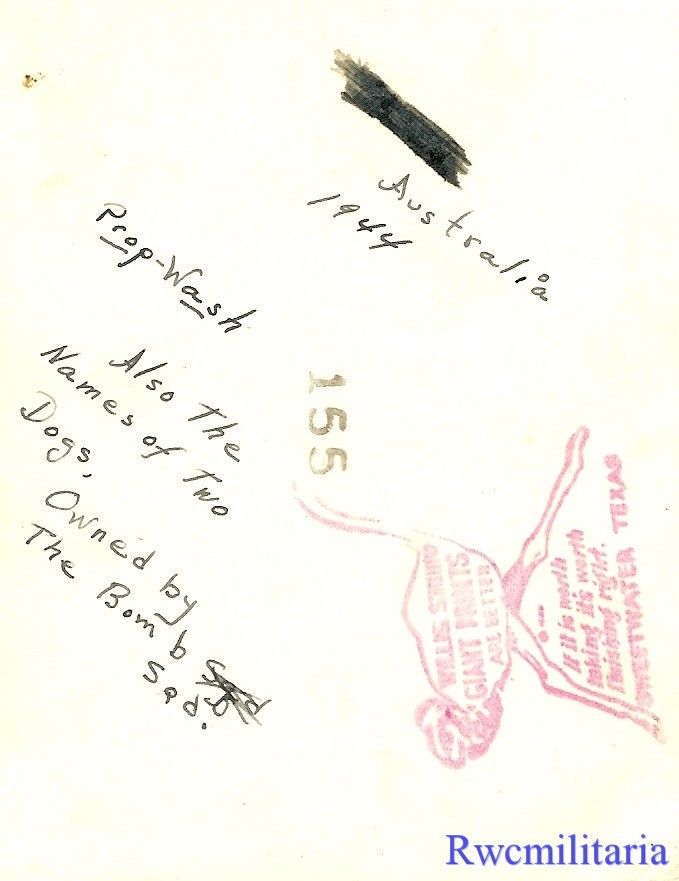 Australia
1944
Prop-Wash
Also The
Names of Two
Dogs,
Owned by
The Bomb
Sqd.
155
WILLIE'S
GIANT PRINTS
ARE BETTER
If it is worth
taking its worth
finishing right.
SWEETWATER TEXAS
Rwcmilitaria